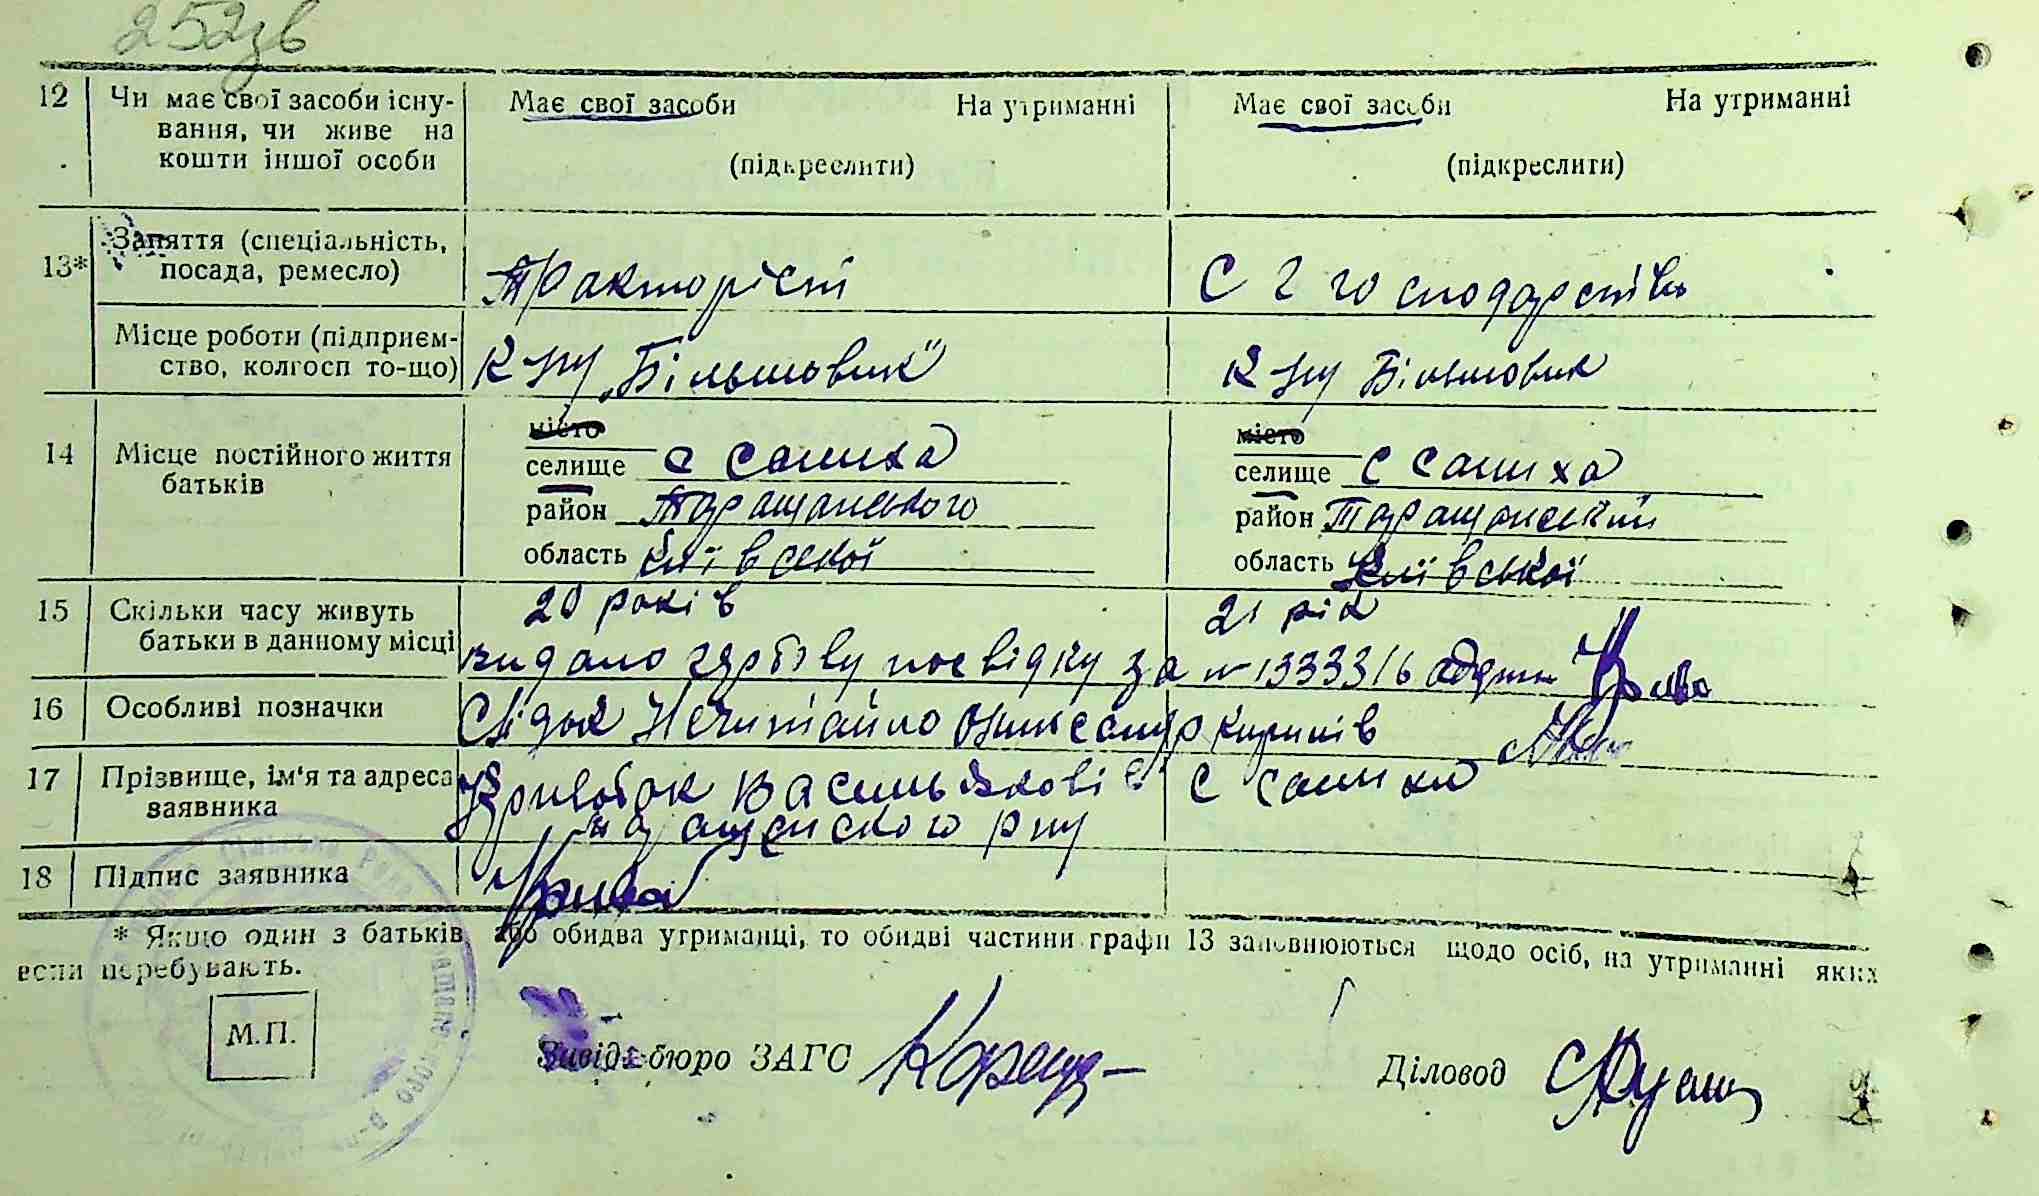 252зв
12 Чи має свої засоби існу- Має свої засоби На утриманні Має свої засоби На утриманні
вання, чи живе на
кошти іншої особи (підкреслити) (підкреслити)
13* Заняття (спеціальність,
посада, ремесло) Тракторіст С г господарство
Місце роботи (підприєм-
ство, колгосп то-що) К-зпу „Більшовик" К-зпу Більшовик
місто місто
14 Місце постійного життя селище с Салиха селище с Салиха
батьків район Таращанського район Таращанський
область Київської область Київської
15 Скільки часу живуть 20 років 21 рік
батьки в данному місці видано гербову посвідку за № 1333316 одержив
16 Особливі позначки Свідок Нечитайло Олександр
17 Прізвище, ім'я та адреса с Салиха
заявника
18 Підпис заявника
* Якщо один з батьків або обидва утриманці, то обидві частини графи 13 заповнюються щодо осіб, на утриманні яких
если перебувають.
М.П.
Завід. бюро ЗАГС Діловод